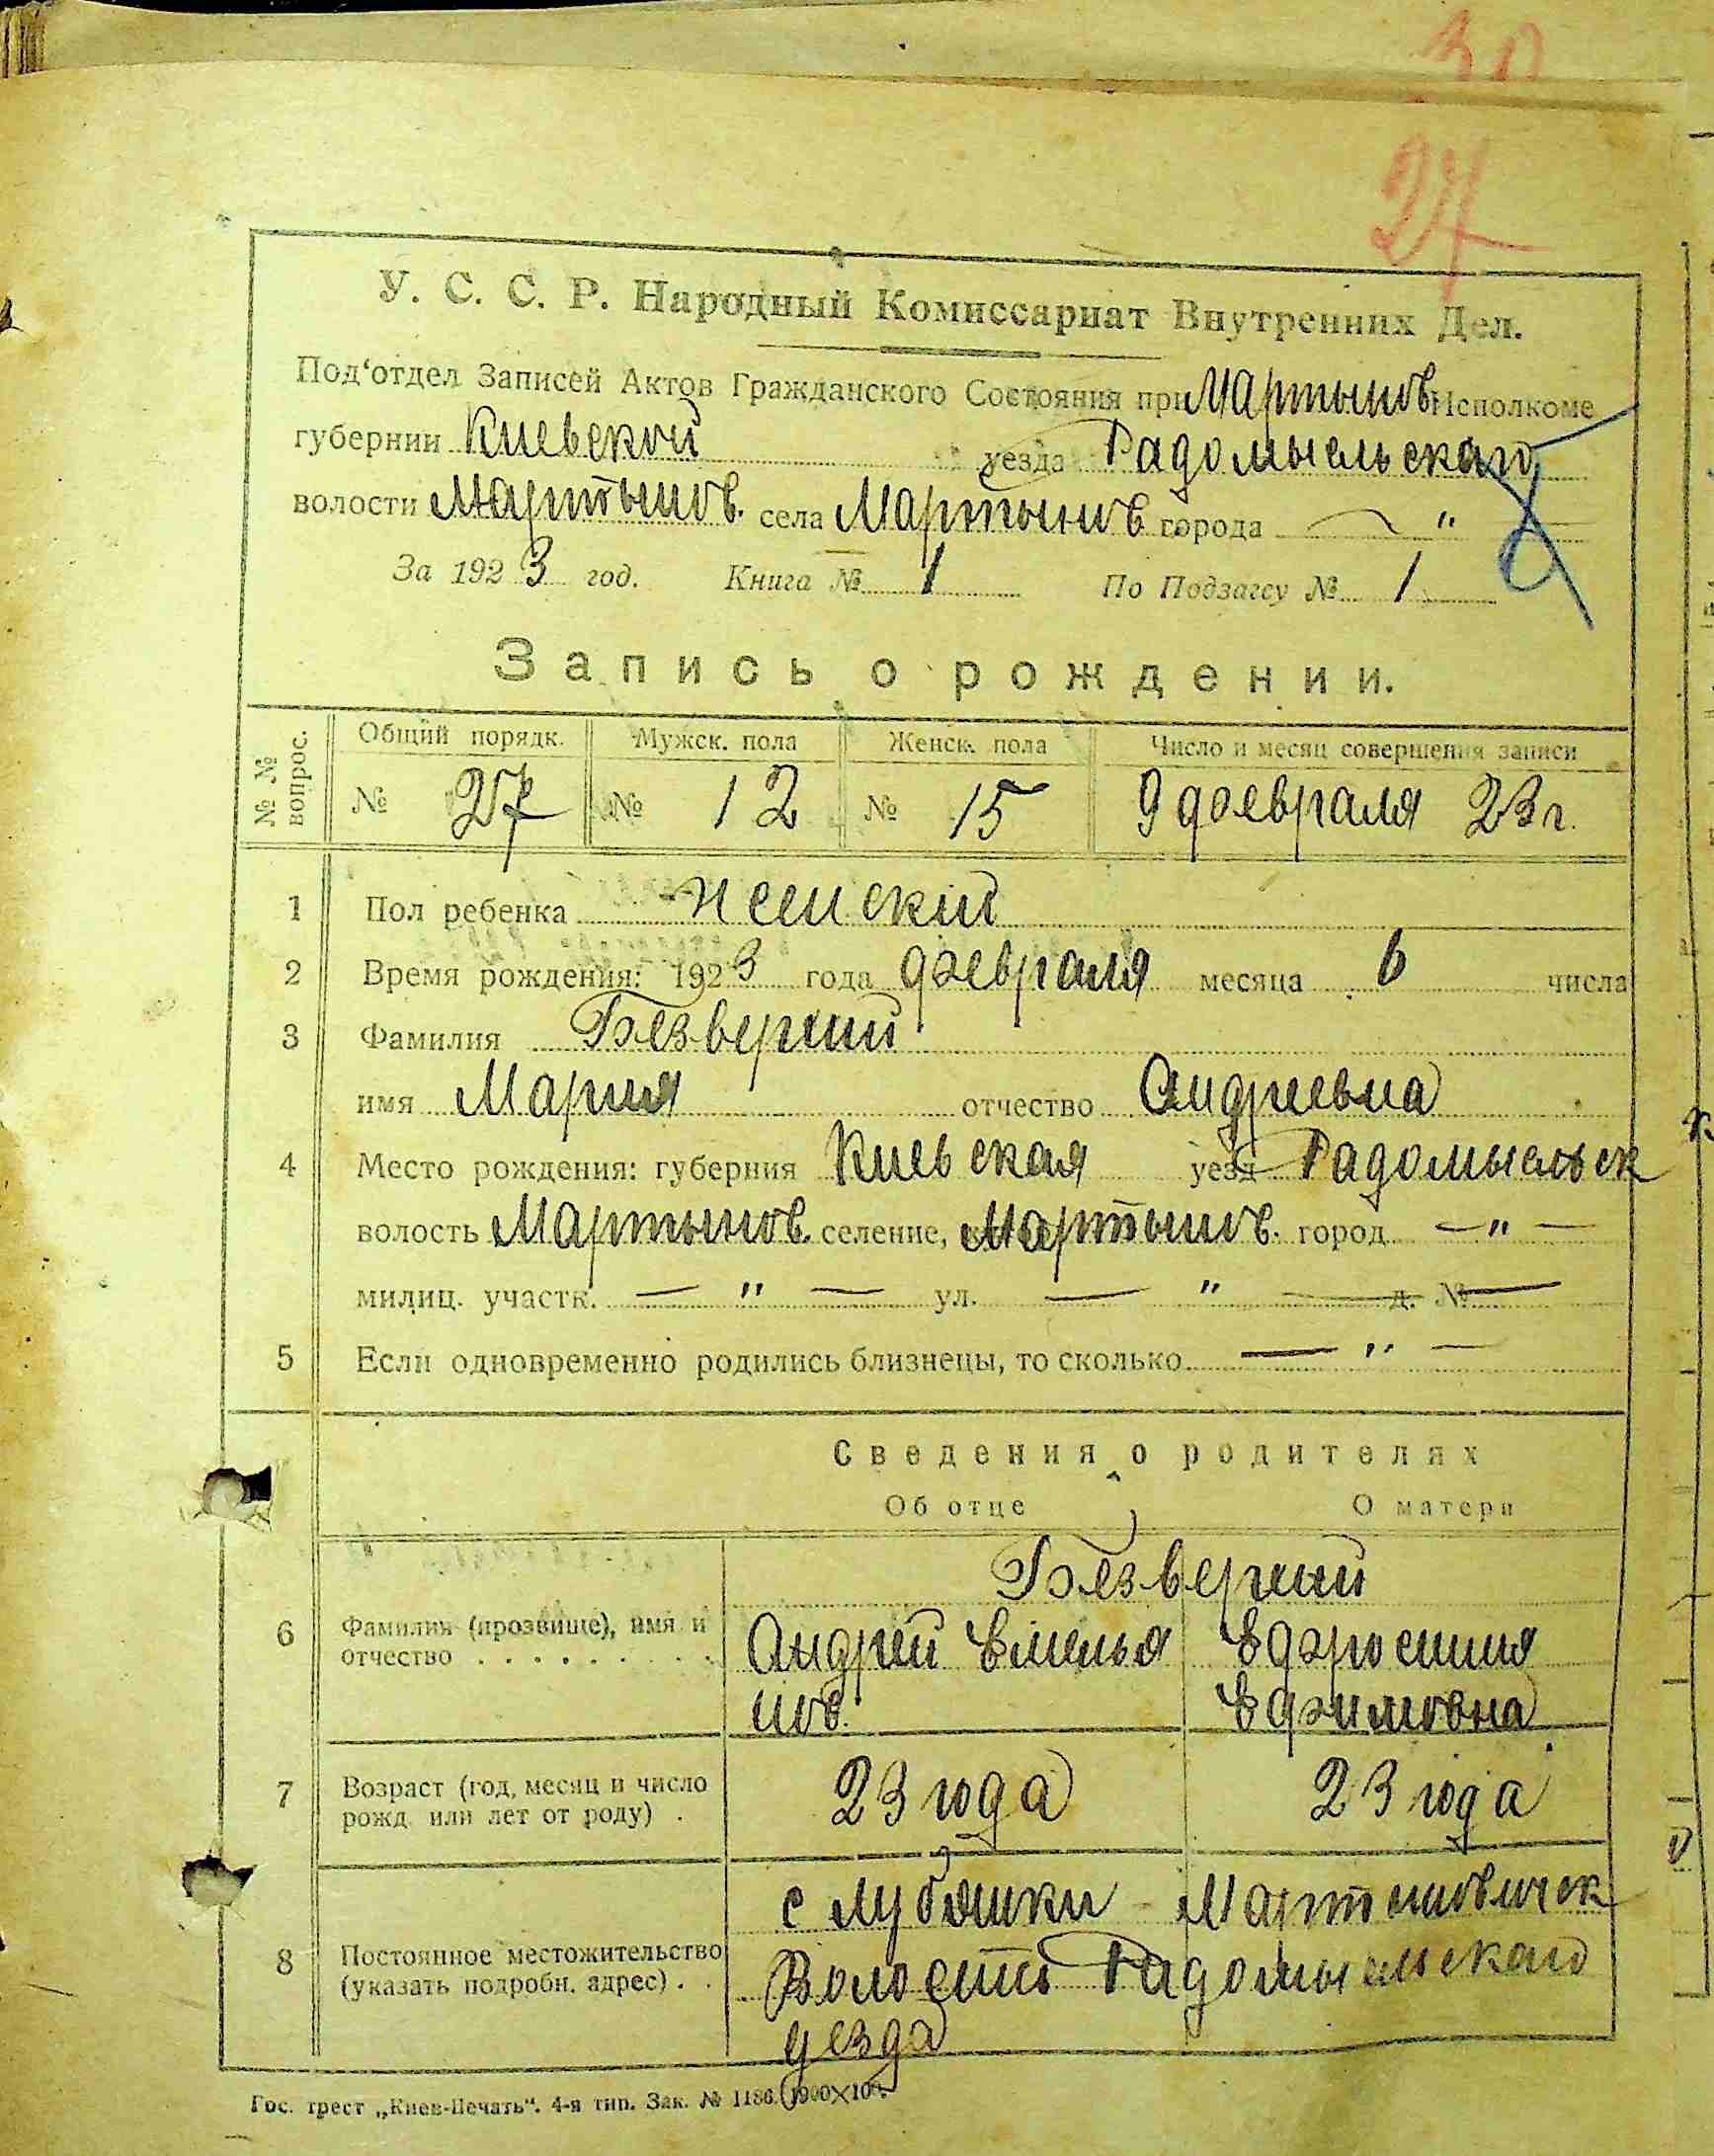 30
27
У. С. С. Р. Народный Комиссариат Внутренних Дел.
Под‘отдел Записей Актов Гражданского Состояния при Мартынов. Исполкоме
губернии Киевской уезда Радомысльскаго
волости Мартынов. села Мартынов города — "
За 1923 год. Книга № 1 По Подзагсу № 1
Запись о рождении.
№ № вопрос. Общий порядк. Мужск. пола Женск. пола Число и месяц совершения записи
№ 27 № 12 № 15 9 февраля 23 г.
1 Пол ребенка женский
2 Время рождения: 1923 года февраля месяца 6 числа
3 Фамилия Безверхий
имя Мария отчество Андреевна
4 Место рождения: губерния Киевская уезд Радомысльск
волость Мартынов. селение, Мартынов. город — " —
милиц. участк. — " — ул. — " — д. № —
5 Если одновременно родились близнецы, то сколько — " —
Сведения о родителях
Об отце О матери
Безверхий
6 Фамилия (прозвище), имя и Андрей Емелья Ефросиния
отчество . . . . . . . . . нов. Ефимовна
7 Возраст (год, месяц и число 23 года 23 года
рожд. или лет от роду) .
с Лубянки Мартыновичск
8 Постоянное местожительство
(указать подробн. адрес) . . Волости Радомысльскаго
уезда
Гос. трест „Киев-Печать“. 4-я тип. Зак. № 1186. 1900×100.